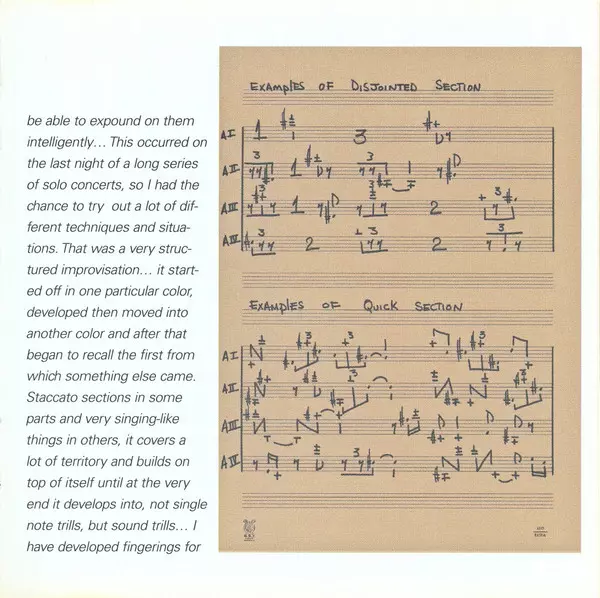 be able to expound on them
intelligently... This occurred on
the last night of a long series
of solo concerts, so I had the
chance to try out a lot of dif-
ferent techniques and situa-
tions. That was a very struc-
tured improvisation... it start-
ed off in one particular color,
developed then moved into
another color and after that
began to recall the first from
which something else came.
Staccato sections in some
parts and very singing-like
things in others, it covers a
lot of territory and builds on
top of itself until at the very
end it develops into, not single
note trills, but sound trills... I
have developed fingerings for
EXAMPLES OF DISJOINTED SECTION
AI
AII
AIII
AIV
EXAMPLES OF QUICK SECTION
AI
AII
AIII
AIV